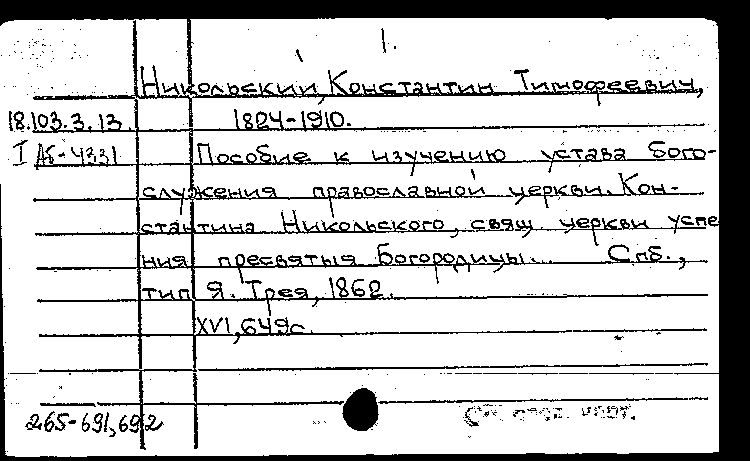 1.
Никольский, Константин Тимофеевич,
18.103.3.13. 1824-1910.
I Аб-4331 Пособие к изучению устава бого-
служения православной церкви. Кон-
стантина Никольского, свящ. церкви успе
ния пресвятыя Богородицы... Спб.,
тип Я. Трея, 1862.
XVI, 649с.
265-691,692